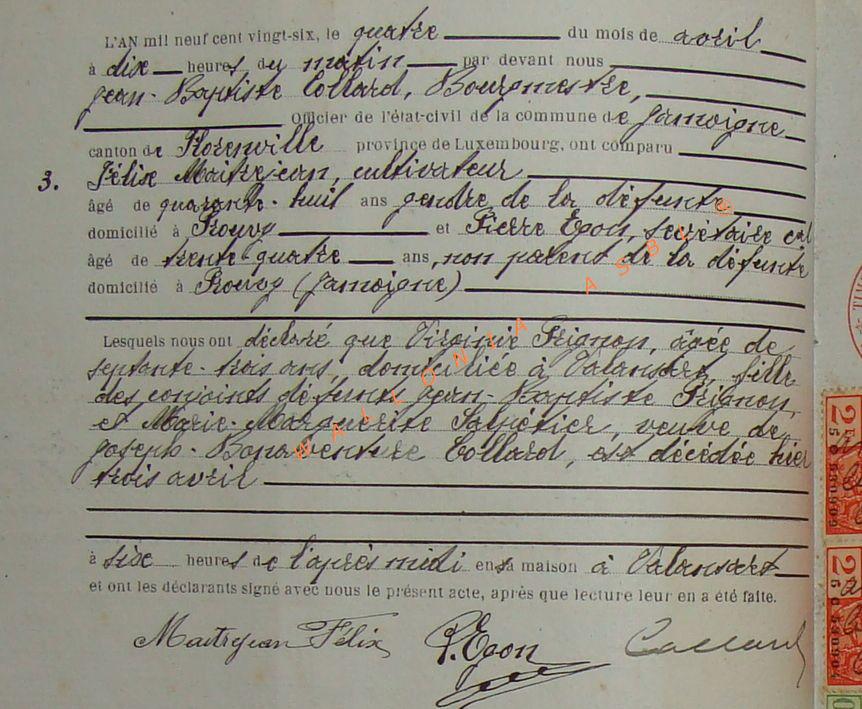 L'AN mil neuf cent vingt-six, le quatre du mois de avril
à dix heures du matin par devant nous
Jean-Baptiste Collard, Bourgmestre,
Officier de l'état-civil de la commune de Jamoigne
canton de Florenville province de Luxembourg, ont comparu
3. Félix Maitrejean, cultivateur
âgé de quarante-huit ans gendre de la défunte
domicilié à Prouvy et Pierre Egon, secrétaire cal
âgé de trente-quatre ans, non parent de la défunte
domicilié à Prouvy (Jamoigne)
Lesquels nous ont déclaré que Virginie Prignon, âgée de
septante-trois ans, domiciliée à Valansart, fille
des conjoints défunts Jean-Baptiste Prignon,
et Marie-Marguerite, veuve de
Joseph-Bonaventure Collard, est décédée hier
trois avril
à six heures de l'après midi en sa maison à Valansart
et ont les déclarants signé avec nous le présent acte, après que lecture leur en a été faite.
Maitrejean Félix P. Egon Collard
WALLONIA ASBL ©